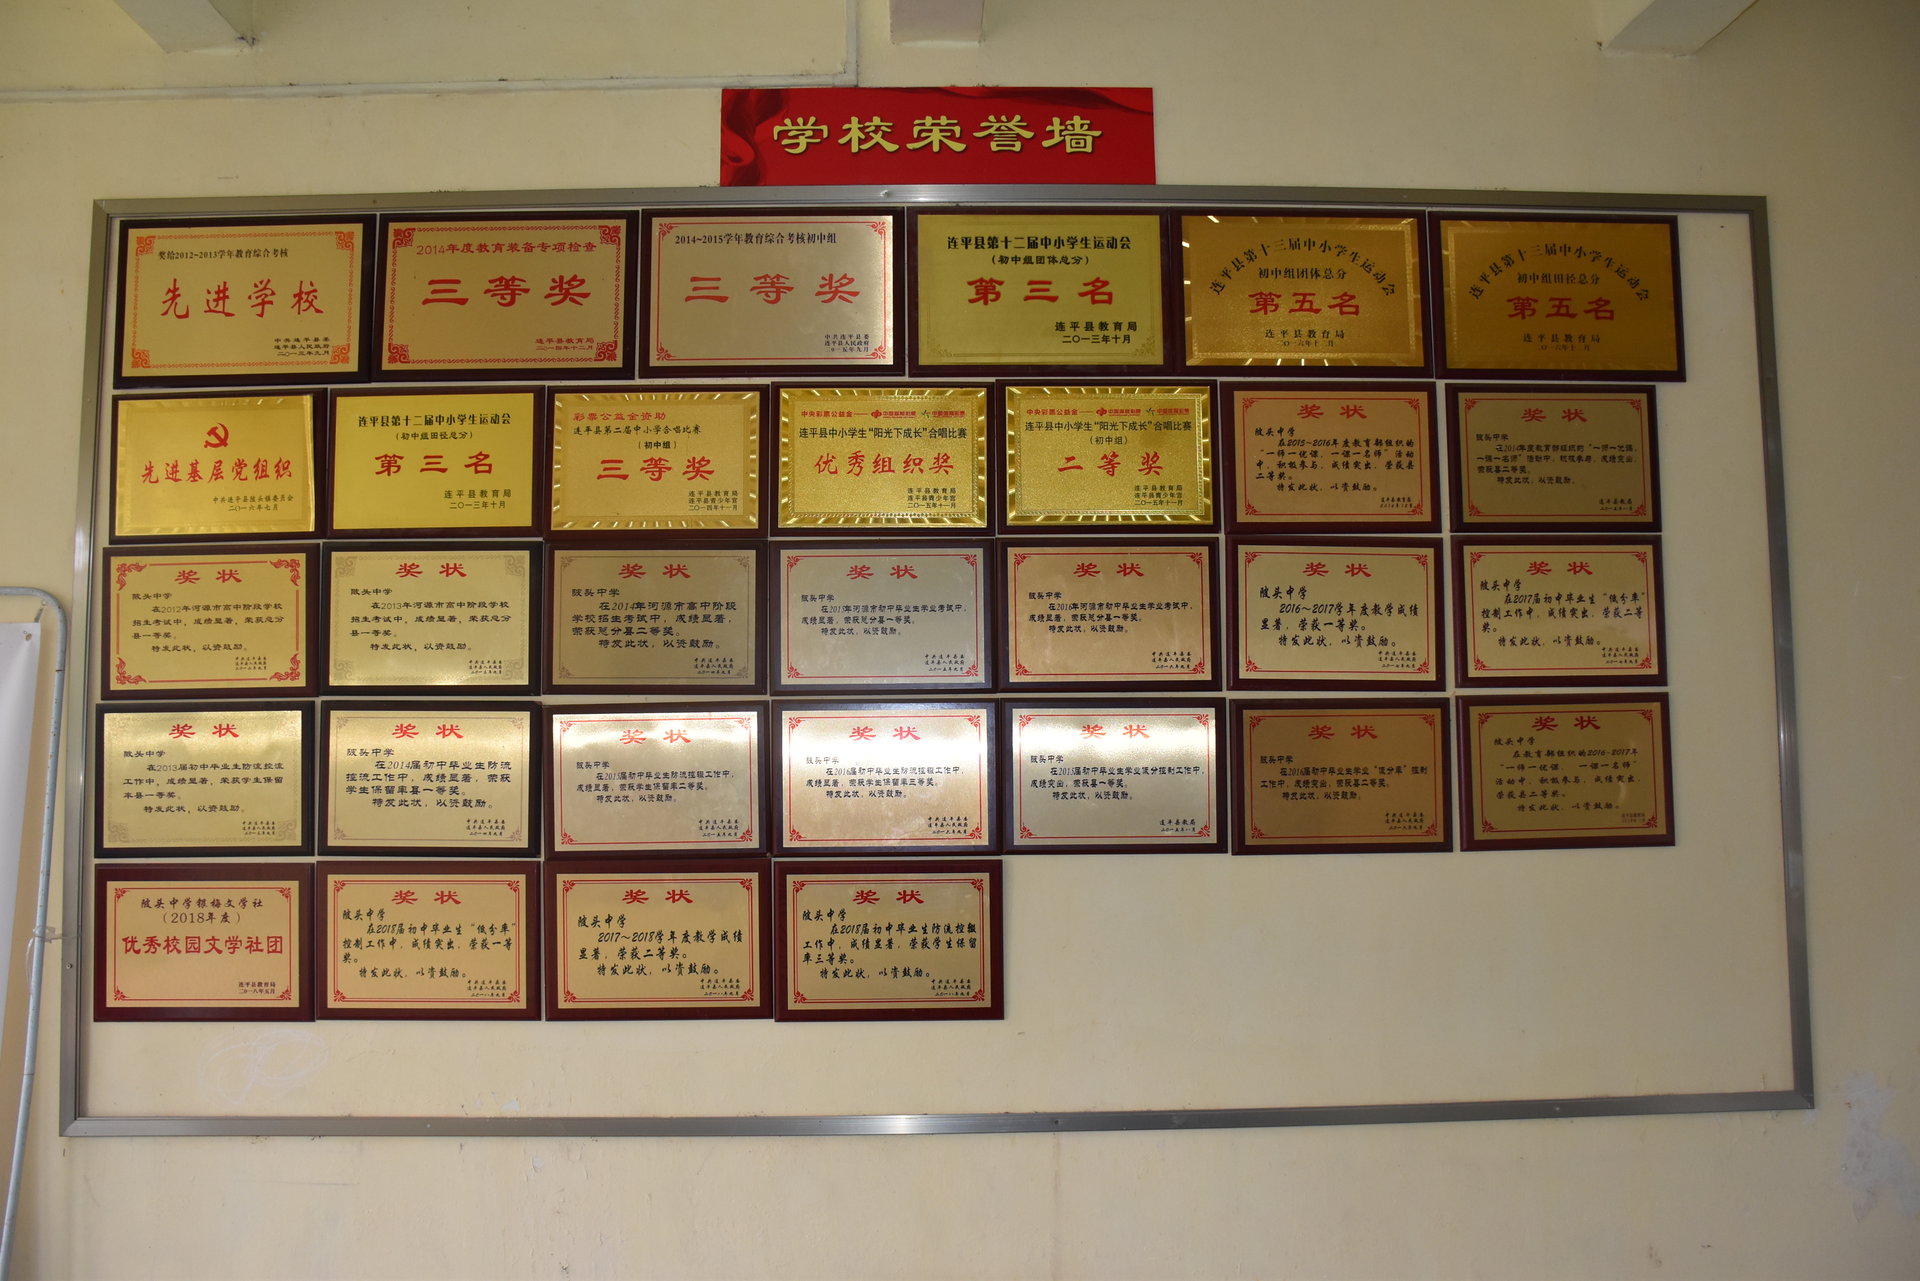 学校荣誉墙
奖给2012~2013学年教育综合考核
先进学校
中共连平县委
连平县人民政府
二〇一三年九月
2014年度教育装备专项检查
三等奖
连平县教育局
二〇一四年十二月
2014~2015学年教育综合考核初中组
三等奖
中共连平县委
连平县人民政府
二〇一五年九月
连平县第十二届中小学生运动会
(初中组团体总分)
第三名
连平县教育局
二〇一三年十月
连平县第十三届中小学生运动会
初中组团体总分
第五名
连平县教育局
连平县第十三届中小学生运动会
初中组田径总分
第五名
连平县教育局
先进基层党组织
中共连平县陂头镇委员会
二〇一六年七月
连平县第十二届中小学生运动会
(初中组田径总分)
第三名
连平县教育局
二〇一三年十月
彩票公益金资助
连平县第二届中小学合唱比赛
(初中组)
三等奖
连平县教育局
连平县青少年宫
二〇一四年十一月
中央彩票公益金——中国福利彩票 中国体育彩票
连平县中小学生“阳光下成长”合唱比赛
优秀组织奖
连平县教育局
连平县青少年宫
二〇一五年十一月
中央彩票公益金——中国福利彩票 中国体育彩票
连平县中小学生“阳光下成长”合唱比赛
(初中组)
二等奖
连平县教育局
连平县青少年宫
二〇一五年十一月
奖状
陂头中学
在2015~2016年度教育部组织的
“一师一优课，一课一名师”活动
中，积极参与，成绩突出，荣获县
二等奖。
特发此状，以资鼓励。
连平县教育局
奖状
陂头中学
在2014年度教育部组织的“一师一优课，
一课一名师”活动中，积极参与，成绩突出，
荣获县二等奖。
特发此状，以资鼓励。
连平县教局
奖状
陂头中学
在2012年河源市高中阶段学校
招生考试中，成绩显著，荣获总分
县一等奖。
特发此状，以资鼓励。
中共连平县委
连平县人民政府
奖状
陂头中学
在2013年河源市高中阶段学校
招生考试中，成绩显著，荣获总分
县一等奖。
特发此状，以资鼓励。
中共连平县委
连平县人民政府
二〇一三年九月
奖状
陂头中学
在2014年河源市高中阶段
学校招生考试中，成绩显著，
荣获总分县二等奖。
特发此状，以资鼓励。
中共连平县委
连平县人民政府
二〇一四年九月
奖状
陂头中学
在2015年河源市初中毕业生学业考试中，
成绩显著，荣获总分县一等奖。
特发此状，以资鼓励。
中共连平县委
连平县人民政府
二〇一五年九月
奖状
陂头中学
在2016年河源市初中毕业生学业考试中，
成绩显著，荣获总分县一等奖。
特发此状，以资鼓励。
中共连平县委
连平县人民政府
二〇一六年九月
奖状
陂头中学
2016~2017学年度教学成绩
显著，荣获一等奖。
特发此状，以资鼓励。
中共连平县委
连平县人民政府
二〇一七年九月
奖状
陂头中学
在2017届初中毕业生“低分率”
控制工作中，成绩突出，荣获二等
奖。
特发此状，以资鼓励。
中共连平县委
连平县人民政府
二〇一七年九月
奖状
陂头中学
在2013届初中毕业生防流控流
工作中，成绩显著，荣获学生保留
率县一等奖。
特发此状，以资鼓励。
中共连平县委
连平县人民政府
二〇一三年九月
奖状
陂头中学
在2014届初中毕业生防流
控流工作中，成绩显著，荣获
学生保留率县一等奖。
特发此状，以资鼓励。
中共连平县委
连平县人民政府
二〇一四年九月
奖状
陂头中学
在2015届初中毕业生防流控辍工作中，
成绩显著，荣获学生保留率二等奖。
特发此状，以资鼓励。
中共连平县委
连平县人民政府
二〇一五年九月
奖状
陂头中学
在2016届初中毕业生防流控辍工作中，
成绩显著，荣获学生保留率三等奖。
特发此状，以资鼓励。
中共连平县委
连平县人民政府
二〇一六年九月
奖状
陂头中学
在2015届初中毕业生学业低分控制工作中，
成绩突出，荣获县一等奖。
特发此状，以资鼓励。
连平县教局
二〇一五年八月
奖状
陂头中学
在2016届初中毕业生学业“低分率”控制
工作中，成绩突出，荣获县二等奖。
特发此状，以资鼓励。
中共连平县委
连平县人民政府
二〇一六年九月
奖状
陂头中学
在教育部组织的2016-2017年
“一师一优课、一课一名师”
活动中，积极参与，成绩突出，
荣获县二等奖。
特发此状，以资鼓励。
陂头中学银梅文学社
(2018年度)
优秀校园文学社团
连平县教育局
二〇一八年五月
奖状
陂头中学
在2018届初中毕业生“低分率”
控制工作中，成绩突出，荣获一等
奖。
特发此状，以资鼓励。
中共连平县委
连平县人民政府
二〇一八年九月
奖状
陂头中学
2017~2018学年度教学成绩
显著，荣获二等奖。
特发此状，以资鼓励。
中共连平县委
连平县人民政府
二〇一八年九月
奖状
陂头中学
在2018届初中毕业生防流控辍
工作中，成绩显著，荣获学生保留
率三等奖。
特发此状，以资鼓励。
中共连平县委
连平县人民政府
二〇一八年九月